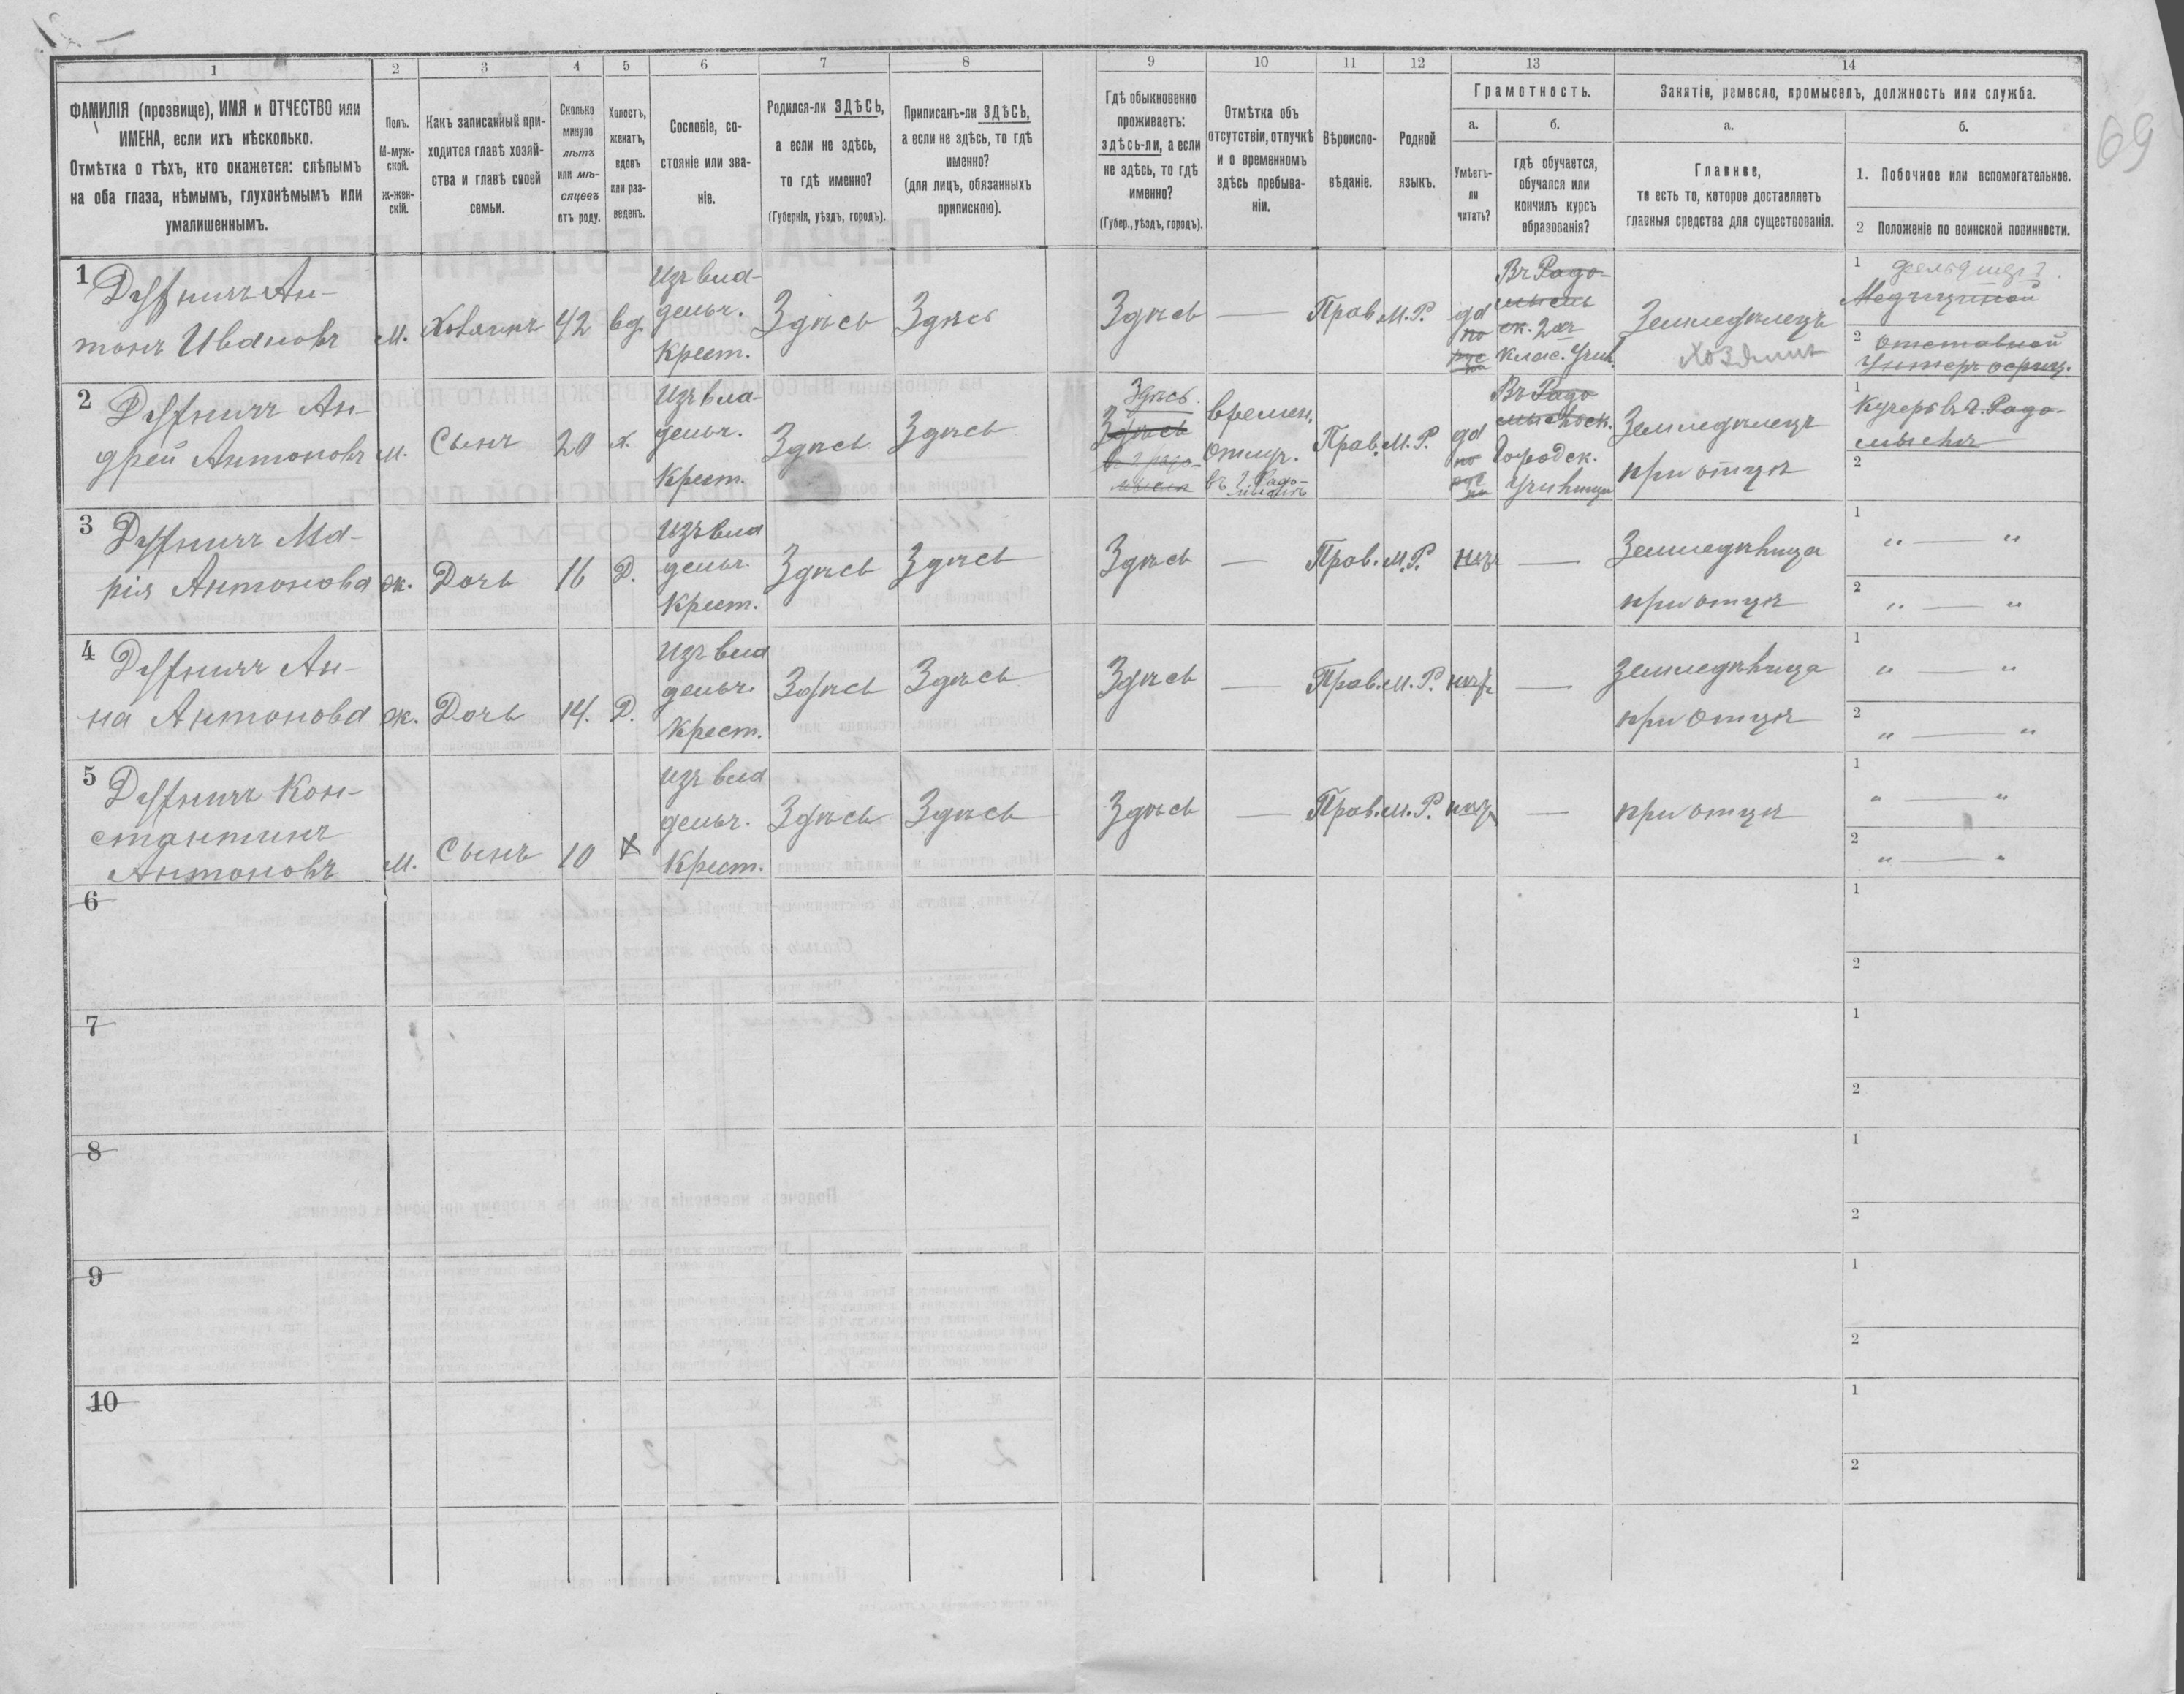 69
1
2
3
4
5
6
7
8
9
10
11
12
13
14
ФАМИЛІЯ (прозвище), ИМЯ и ОТЧЕСТВО или
ИМЕНА, если ихъ нѣсколько.
Отмѣтка о тѣхъ, кто окажется: слѣпымъ
на оба глаза, нѣмымъ, глухонѣмымъ или
умалишеннымъ.
Полъ.
М-муж-
ской.
Ж-жен-
скій.
Какъ записанный при-
ходится главѣ хозяй-
ства и главѣ своей
семьи.
Сколько
минуло
лѣтъ
или мѣ-
сяцевъ
отъ роду.
Холостъ,
женатъ,
вдовъ
или раз-
веденъ.
Сословіе, со-
стояніе или зва-
ніе.
Родился-ли ЗДѢСЬ,
а если не здѣсь,
то гдѣ именно?
(Губернія, уѣздъ, городъ).
Приписанъ-ли ЗДѢСЬ,
а если не здѣсь, то гдѣ
именно?
(для лицъ, обязанныхъ
припискою).
Гдѣ обыкновенно
проживаетъ:
здѣсь-ли, а если
не здѣсь, то гдѣ
именно?
(Губер., уѣздъ, городъ).
Отмѣтка объ
отсутствіи, отлучкѣ
и о временномъ
здѣсь пребыва-
ніи.
Вѣроиспо-
вѣданіе.
Родной
языкъ.
Грамотность.
а.
Умѣетъ-
ли
читать?
б.
гдѣ обучается,
обучался или
кончилъ курсъ
образованія?
Занятіе, ремесло, промыселъ, должность или служба.
а.
Главное,
то есть то, которое доставляетъ
главныя средства для существованія.
б.
1. Побочное или вспомогательное.
2 Положеніе по воинской повинности.
1
Ан-
тонъ Ивановъ
м.
Хозяинъ
42
вд.
Изъ вла-
дельч.
Крест.
Здѣсь
Здѣсь
Здѣсь
—
Прав.
М.Р.
да
по
рус
ки
Въ Радо-
мысль
ск. 2хъ
клас. Учил.
Земледѣлецъ
Хозяинъ
1
Фельдшер
2 отставной
Унтеръ офиц.
2
Ан-
дрей Антоновъ
м.
Сынъ
20
х.
Изъ вла-
дельч.
Крест.
Здѣсь
Здѣсь
Здѣсь.
Здѣсь
в г. Радо-
мысля
Времен.
Отлуч.
въ г. Радо-
мыслѣ
Прав.
М.Р.
да
по
рус
ки
Въ Радо
мысльск.
Городск.
Училищѣ
Земледѣлецъ
при отцѣ
1
Кучеръ въ г. Радо-
мыслѣ
2
3
Ма-
рія Антонова
ж.
Дочь
16
Д.
Изъ вла
дельч.
Крест.
Здѣсь
Здѣсь
Здѣсь
—
Прав.
М.Р.
нѣтъ
—
Земледѣлица
при отцѣ
1
" — "
2
" — "
4
Ан-
на Антонова
ж.
Дочь
14.
Д.
Изъ вла
дельч.
Крест.
Здѣсь
Здѣсь
Здѣсь
—
Прав.
М.Р.
нѣтъ
—
Земледѣлица
при Отцѣ
1
" — "
2
" — "
5
Кон-
стантинъ
Антоновъ
м.
Сынъ
10
Х
Изъ вла
дельч.
Крест.
Здѣсь
Здѣсь
Здѣсь
—
Прав.
М.Р.
нѣтъ
—
при отцѣ
1
" — "
2
" — "
6
1
2
7
1
2
8
1
2
9
1
2
10
1
2